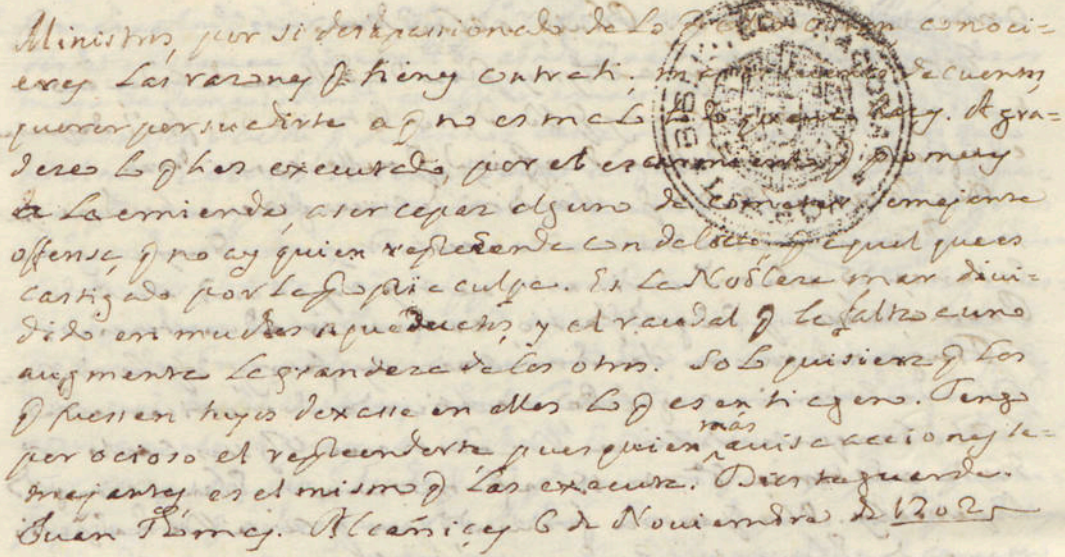 Ministros, por si desapassionado de lo q conoci=
eres las razones q tienes contra ti; de cuentas,
querer persuadirte a q no es malo lo q hazes. Agra=
deseo lo q has executado, por el escarmiento q promuey
a la emienda, a ser cepar alguno de cometer semejante
offensa, q no ay quien reprehenda con del q aquel que es
castigado por la propria culpa. Es la Nobleza mar divi=
dido en muchos aqueductos, y el raudal q le falta a uno
augmenta la grandeza de los otros. Solo quisiera q los
q fuessen tuyos dexasse en ellos lo q es en ti ageno. Tengo
por ocioso el reprenderte, pues quien más avisa acciones se=
mejantes es el mismo q las executa. Dios te guarde.
Juan Pomes. Alcañices 6 de Noviembre de 1702
BIBLIOTECA NACIONAL